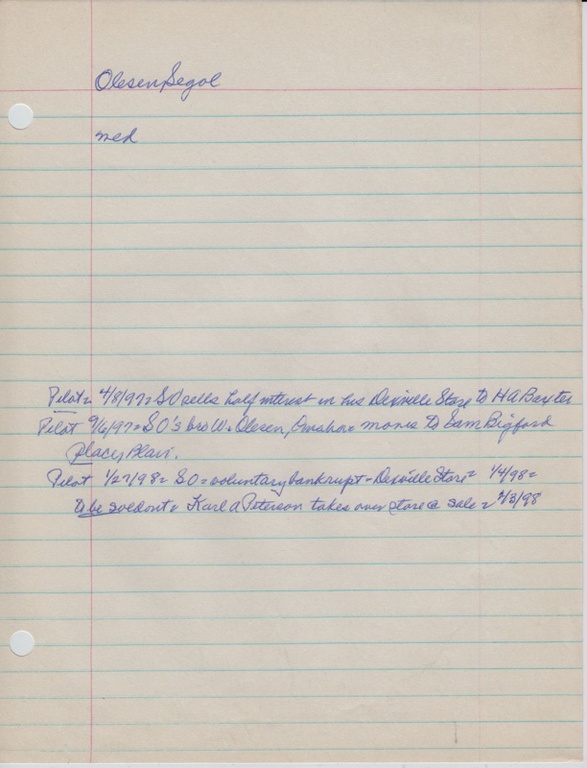 Olesen, Segol
med
Pilot = 4/8/97 = S O sells half interest in his Dexville Store to H A Baxter
Pilot 9/6/97 = S O's bro W. Olesen, Omaha = moves to Sam Bigford
place, Blair.
Pilot 1/27/98 = S O = voluntary bankrupt = Dexville Store = 1/4/98 =
to be sold out = Karl A Peterson takes over store @ sale =